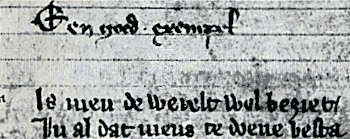 Een goed exempel
Is men de werelt wel besiet
In al dat mens te wene besta